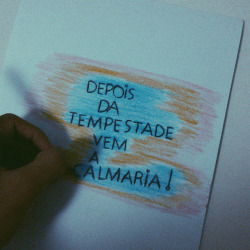 DEPOIS
DA
TEMPESTADE
VEM
A
CALMARIA!